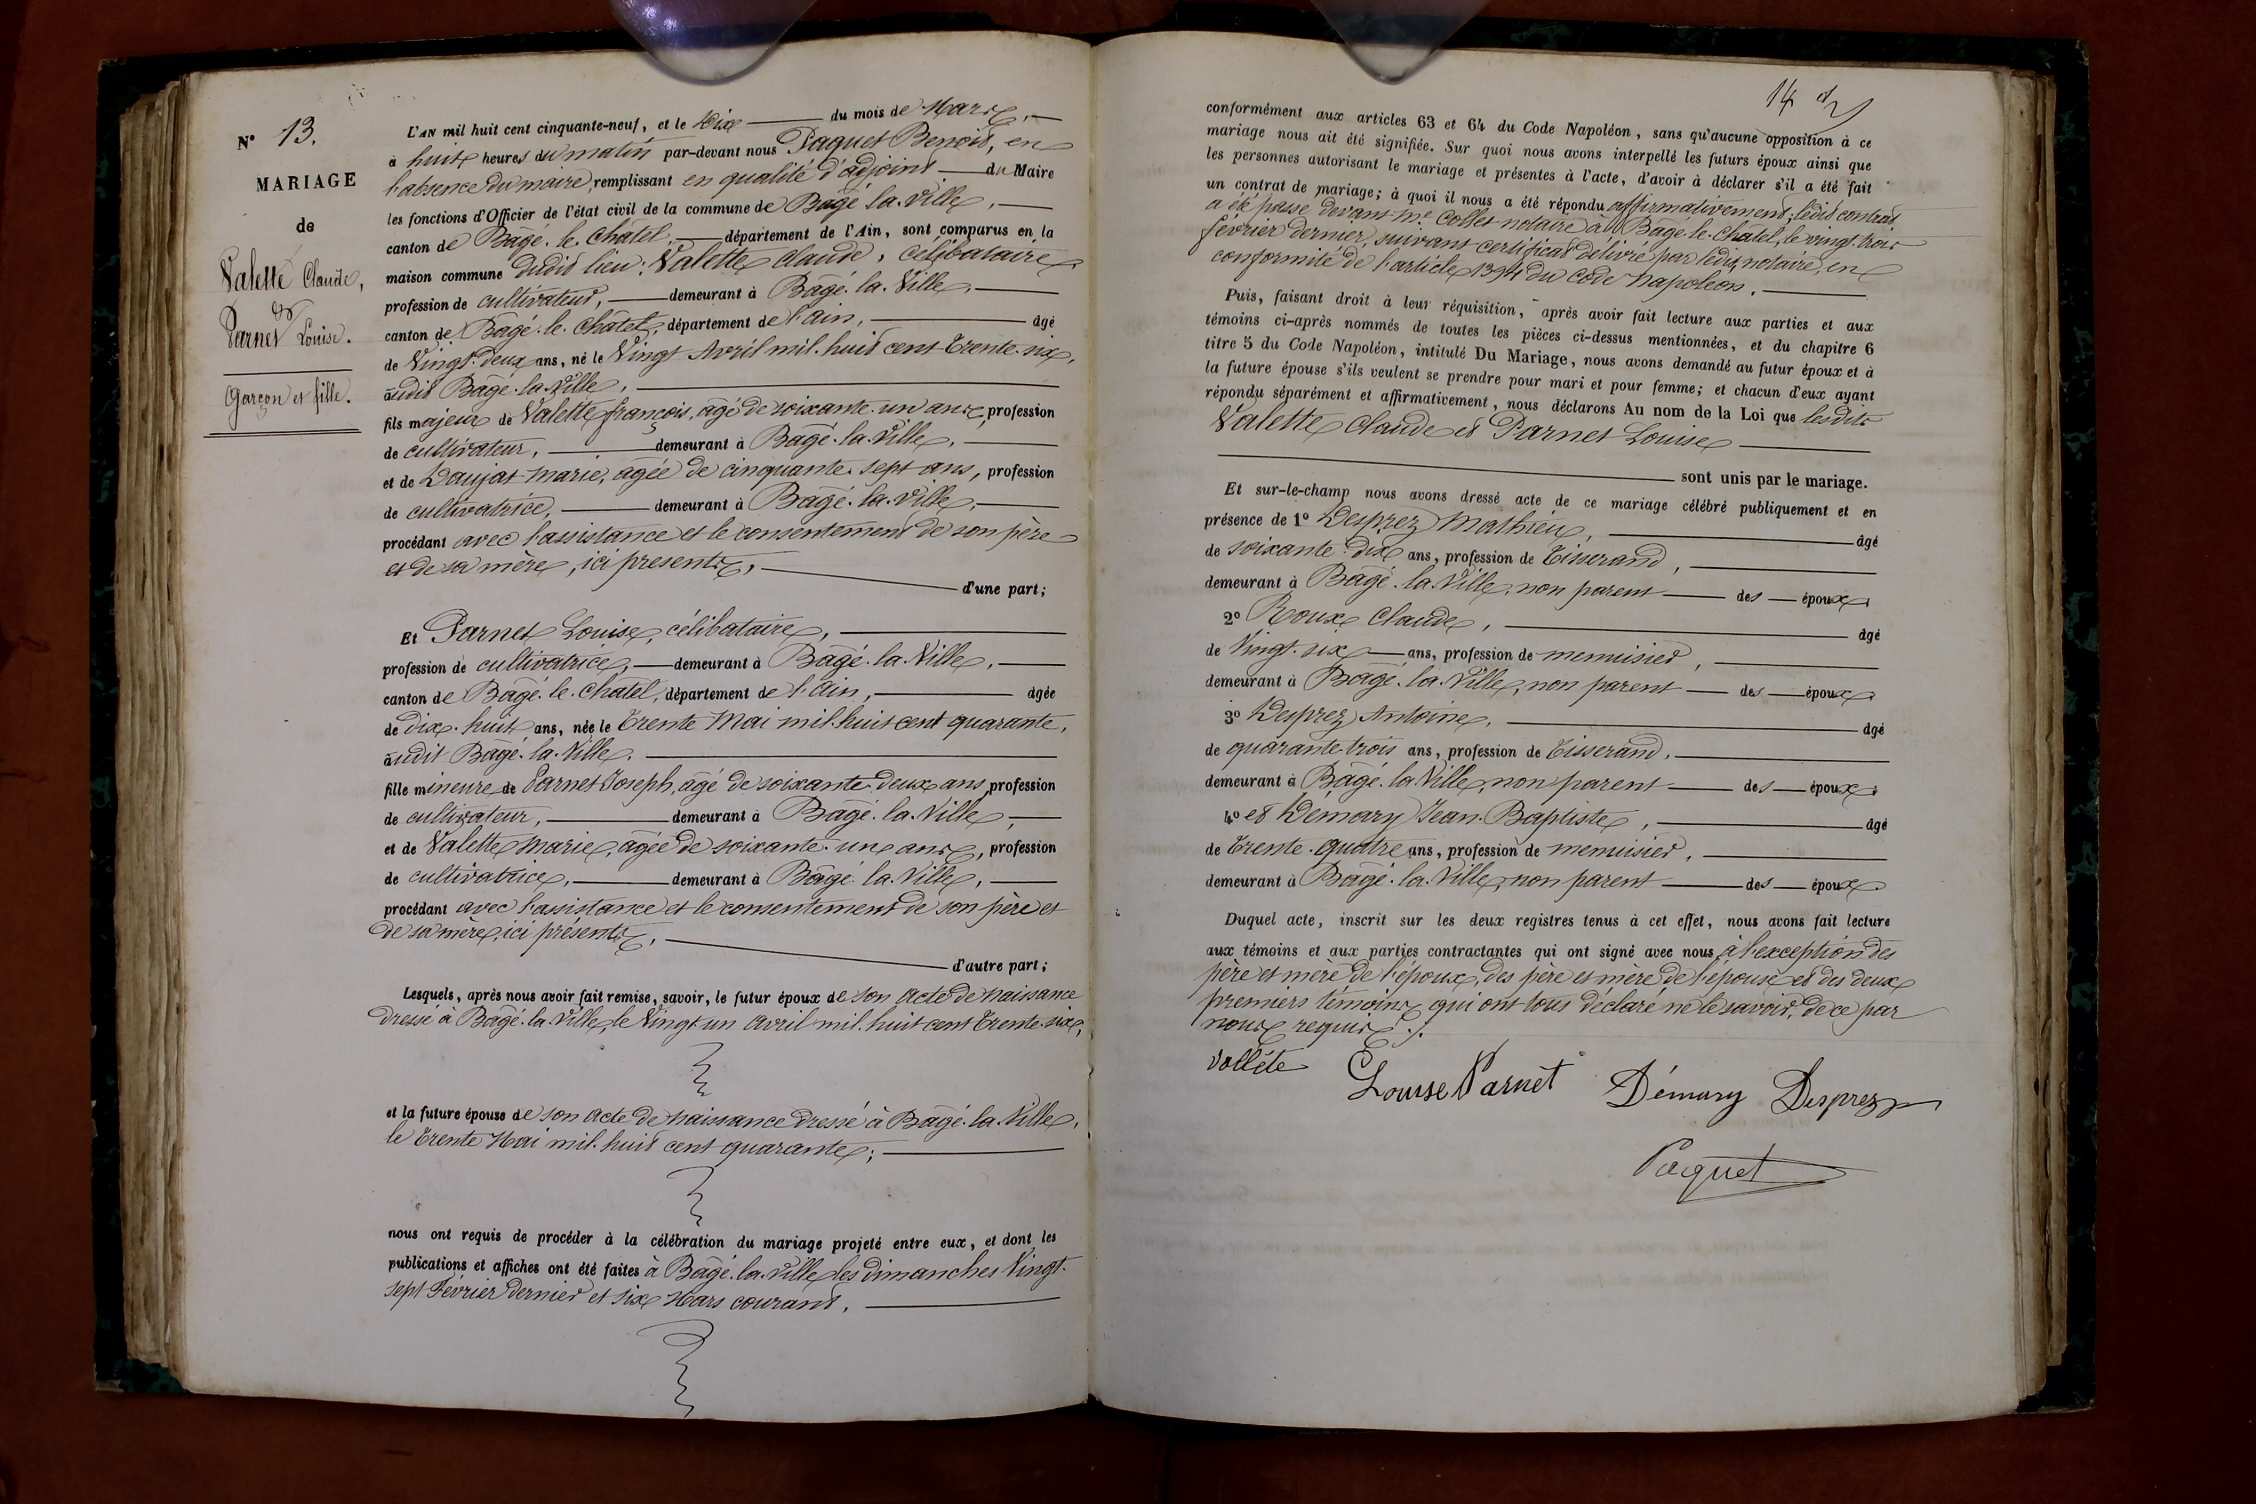 N° 13.
MARIAGE
de
Valette Claude,
et
Parnet Louise.
Garçon et fille.
L'AN mil huit cent cinquante-neuf, et le Dix du mois de Mars,
à huit heures du matin par-devant nous Paquet Benoit, en
l'absence du maire, remplissant en qualité d'adjoint du Maire
les fonctions d'Officier de l'état civil de la commune de Bâgé-la-Ville,
canton de Bâgé-le-Châtel, département de l'Ain, sont comparus en la
maison commune dudit lieu: Valette Claude, célibataire,
profession de cultivateur, demeurant à Bâgé-la-Ville,
canton de Bâgé-le-Châtel, département de l'Ain, âgé
de Vingt-deux ans, né le Vingt Avril mil-huit cent Trente-six,
audit Bâgé-la-Ville,
fils majeur de Valette françois, âgé de soixante-un ans, profession
de cultivateur, demeurant à Bâgé-la-Ville,
et de Daujat Marie, âgée de cinquante-sept ans, profession
de cultivatrice, demeurant à Bâgé-la-Ville,
procédant avec l'assistance et le consentement de son père
et de sa mère, ici presents,
d'une part;
Et Parnet Louise, célibataire,
profession de cultivatrice, demeurant à Bâgé-la-Ville,
canton de Bâgé-le-Châtel, département de l'Ain, âgée
de dix-huit ans, née le Trente Mai mil-huit cent quarante,
audit Bâgé-la-Ville.
fille mineure de Parnet Joseph, âgé de soixante-deux ans, profession
de cultivateur, demeurant à Bâgé-la-Ville,
et de Valette Marie, âgée de soixante-un ans, profession
de cultivatrice, demeurant à Bâgé-la-Ville,
procédant avec l'assistance et le consentement de son père et
de sa mère, ici présents,
d'autre part;
Lesquels, après nous avoir fait remise, savoir, le futur époux de son acte de naissance
dressé à Bâgé-la-Ville le Vingt-un Avril mil-huit cent Trente-six,
et la future épouse de son acte de naissance dressé à Bâgé-la-Ville,
le Trente Mai mil-huit cent quarante;
nous ont requis de procéder à la célébration du mariage projeté entre eux, et dont les
publications et affiches ont été faites à Bâgé-la-Ville les dimanches Vingt-
sept Février dernier et six Mars courant.
14
conformément aux articles 63 et 64 du Code Napoléon, sans qu'aucune opposition à ce
mariage nous ait été signifiée. Sur quoi nous avons interpellé les futurs époux ainsi que
les personnes autorisant le mariage et présentes à l'acte, d'avoir à déclarer s'il a été fait
un contrat de mariage; à quoi il nous a été répondu affirmativement; ledit contrat
a été passé devant Me Collet notaire à Bâgé-le-Chatel, le vingt-trois
février dernier, suivant certificat délivré par ledit notaire, en
conformité de l'article 1394 du Code Napoléon.
Puis, faisant droit à leur réquisition, après avoir fait lecture aux parties et aux
témoins ci-après nommés de toutes les pièces ci-dessus mentionnées, et du chapitre 6
titre 5 du Code Napoléon, intitulé Du Mariage, nous avons demandé au futur époux et à
la future épouse s'ils veulent se prendre pour mari et pour femme; et chacun d'eux ayant
répondu séparément et affirmativement, nous déclarons Au nom de la Loi que lesdits
Valette Claude et Parnet Louise
sont unis par le mariage.
Et sur-le-champ nous avons dressé acte de ce mariage célébré publiquement et en
présence de 1° Desprez Mathieu, âgé
de soixante-dix ans, profession de Tisserand,
demeurant à Bâgé-la-Ville, non parent des époux,
2° Roux Claude, âgé
de Vingt-six ans, profession de menuisier,
demeurant à Bâgé-la-Ville, non parent des époux,
3° Desprez Antoine, âgé
de quarante-trois ans, profession de Tisserand,
demeurant à Bâgé-la-Ville, non parent des époux,
4° et Démary Jean-Baptiste, âgé
de Trente-quatre ans, profession de menuisier,
demeurant à Bâgé-la-Ville, non parent des époux.
Duquel acte, inscrit sur les deux registres tenus à cet effet, nous avons fait lecture
aux témoins et aux parties contractantes qui ont signé avec nous, à l'exception des
père et mère de l'époux, des père et mère de l'épouse et des deux
premiers témoins qui ont tous déclaré ne le savoir, de ce par
nous requis.
vallete Louise Parnet Démary Desprez
Paquet